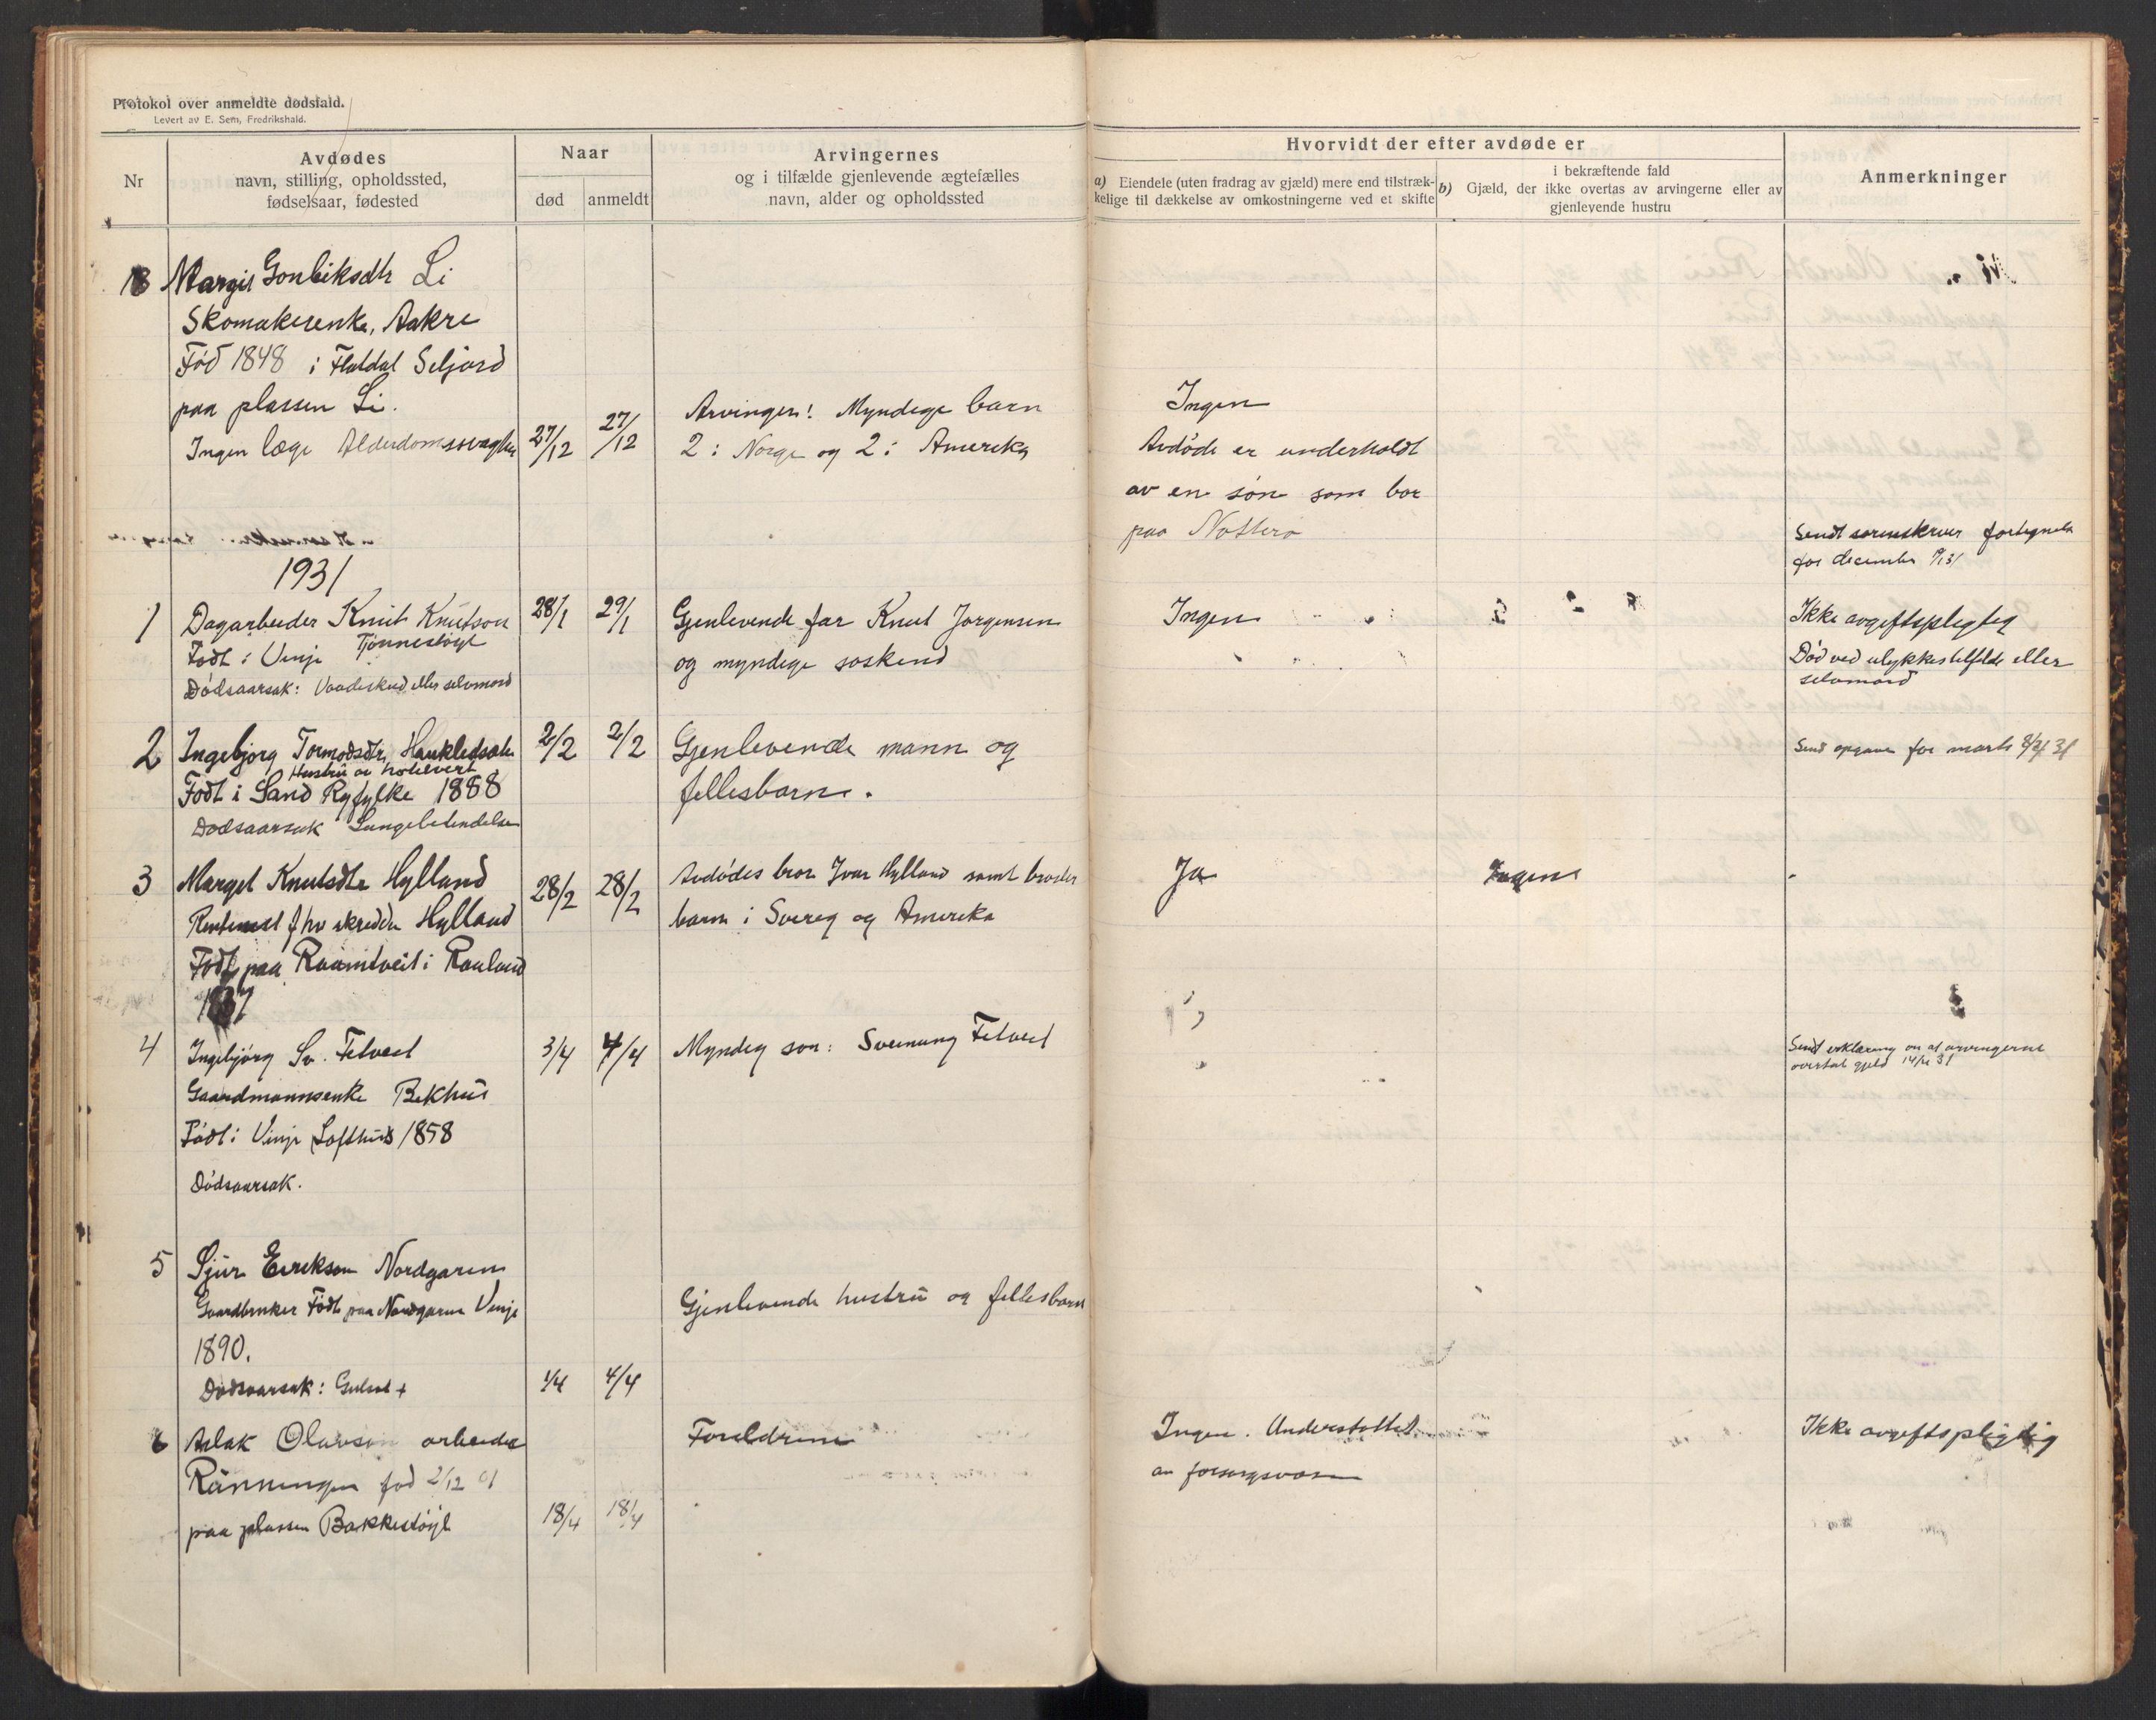 Protokol over anmeldte dødsfald.
Levert av E. Sem, Fredrikshald.
Nr
Avdødes
navn, stilling, opholdssted,
fødselsaar, fødested
Naar
død
anmeldt
Arvingernes
og i tilfælde gjenlevende ægtefælles
navn, alder og opholdssted
Hvorvidt der efter avdøde er
a) Eiendele (uten fradrag av gjæld) mere end tilstræk-
kelige til dækkelse av omkostningerne ved et skifte
i bekræftende fald
b) Gjæld, der ikke overtas av arvingerne eller av
gjenlevende hustru
Anmerkninger
Margit Gonleiksdtr Li
Skomakerenke, Aakre
Fód 1848 i Flatdal Seljord
paa plassen Li.
Ingen læge Alderdomssvaghet
27/12
27/12
Arvinger! Myndige barn
2 i Norge og 2 i Amerika
Ingen
Avdóde er underholdt
av en søn som bor
paa Nøtterø
Sendt sorenskriver fortegnelse
for december
1931
1
Dagarbeider Knut Knutson
Født i Vinje Tjønnestøyl
Dødsaarsak: Vaadeskud eller selvmord
28/1
29/1
Gjenlevende far Knut Jørgensen
og myndige søskend
Ingen
Ikke avgiftspligtig
Død ved ulykkestilfelde eller
selvmord
2
Ingebjørg Tormodsdtr Haukeliseter
Hustru av hotelvert
Født i Sand Ryfylke 1888
Dødsaarsak Lungebetendelse
2/2
2/2
Gjenlevende mann og
fellesbarn.
Send opgave for marts 8/4 31
3
Margit Knutsdtr Hylland
fhv skredder Hylland
Født paa Raamtveit i Rauland
28/2
28/2
Avdødes bror Ivar Hylland samt broder
barn i Sverig og Amerika
Ja
Ingen
4
Ingebjørg Sv. Fetveit
Gaardmannsenke Bekhus
Født i Vinje Lofthus 1858
Dødsaarsak.
3/4
4/4
Myndig søn: Sveinung Fetveit
Sendt erklæring om at arvingerne
overtok gjeld 14/4 31
5
Sjur Eirikson Nordgaren
Gaardbruker Født paa Nordgaren Vinje
1890.
Dødsaarsak: Gulsot +
1/4
4/4
Gjenlevende hustru og fellesbarn
6
Aslak Olavson arbeider
Rønningen fød 2/12 01
paa plassen Bakkestøyl
18/4
18/4
Foreldrene
Ingen. Understøttet
av forsorgsvæsen
Ikke avgiftspligtig